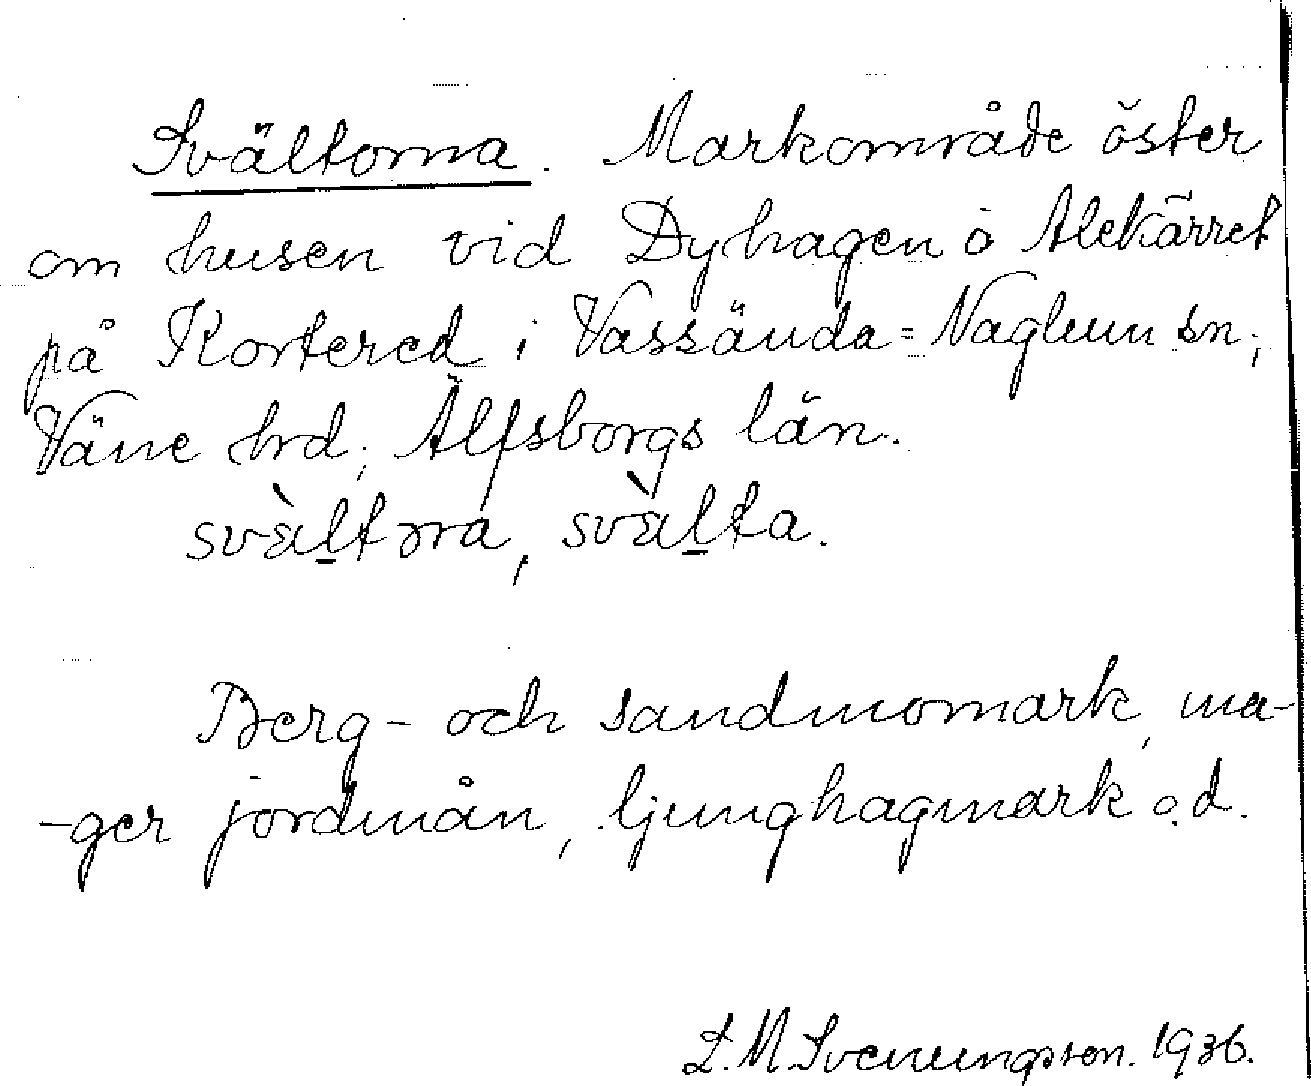 Svältorna. Markområde öster
om husen vid Dyhagen o Alekärret
på Kortered i Vassända=Naglum sn;
Väne hrd; Älfsborgs län.
svàltɔrna, svàlta.
Berg- och sandmomark, ma-
-ger jordmån, ljunghagmark o.d.
L.M. Svenungsson. 1936.